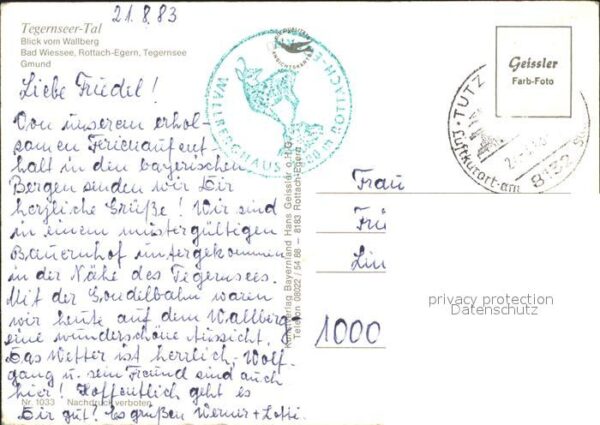 21.8.83
Tegernseer-Tal
Blick vom Wallberg
Bad Wiessee, Rottach-Egern, Tegernsee
Gmund
Liebe Friedel!
Von unserem erhol-
samen Ferienaufent-
halt in den bayerischen
Bergen senden wir Dir
herzliche Grüße! Wir sind
in einem mustergültigen
Bauernhof untergekommen
in der Nähe des Tegernsees.
Mit der Gondelbahn waren
wir heute auf dem Wallberg
eine wunderschöne Aussicht.
Das Wetter ist herrlich, Wolf-
gang u. sein Freund sind auch
hier! Hoffentlich geht es
Dir gut! Es grüßen Werner + Lotti.
Nr. 1033 Nachdruck verboten
WALLBERGHAUS ROTTACH-E
Kunstverlag Bayernland Hans Geissler o.H.G.
Telefon 08022 / 54 68 – 8183 Rottach-Egern
Geissler
Farb-Foto
TUTZ
Luftkurort am
8132
Frau
Frie
Lin
1000
privacy protection
Datenschutz